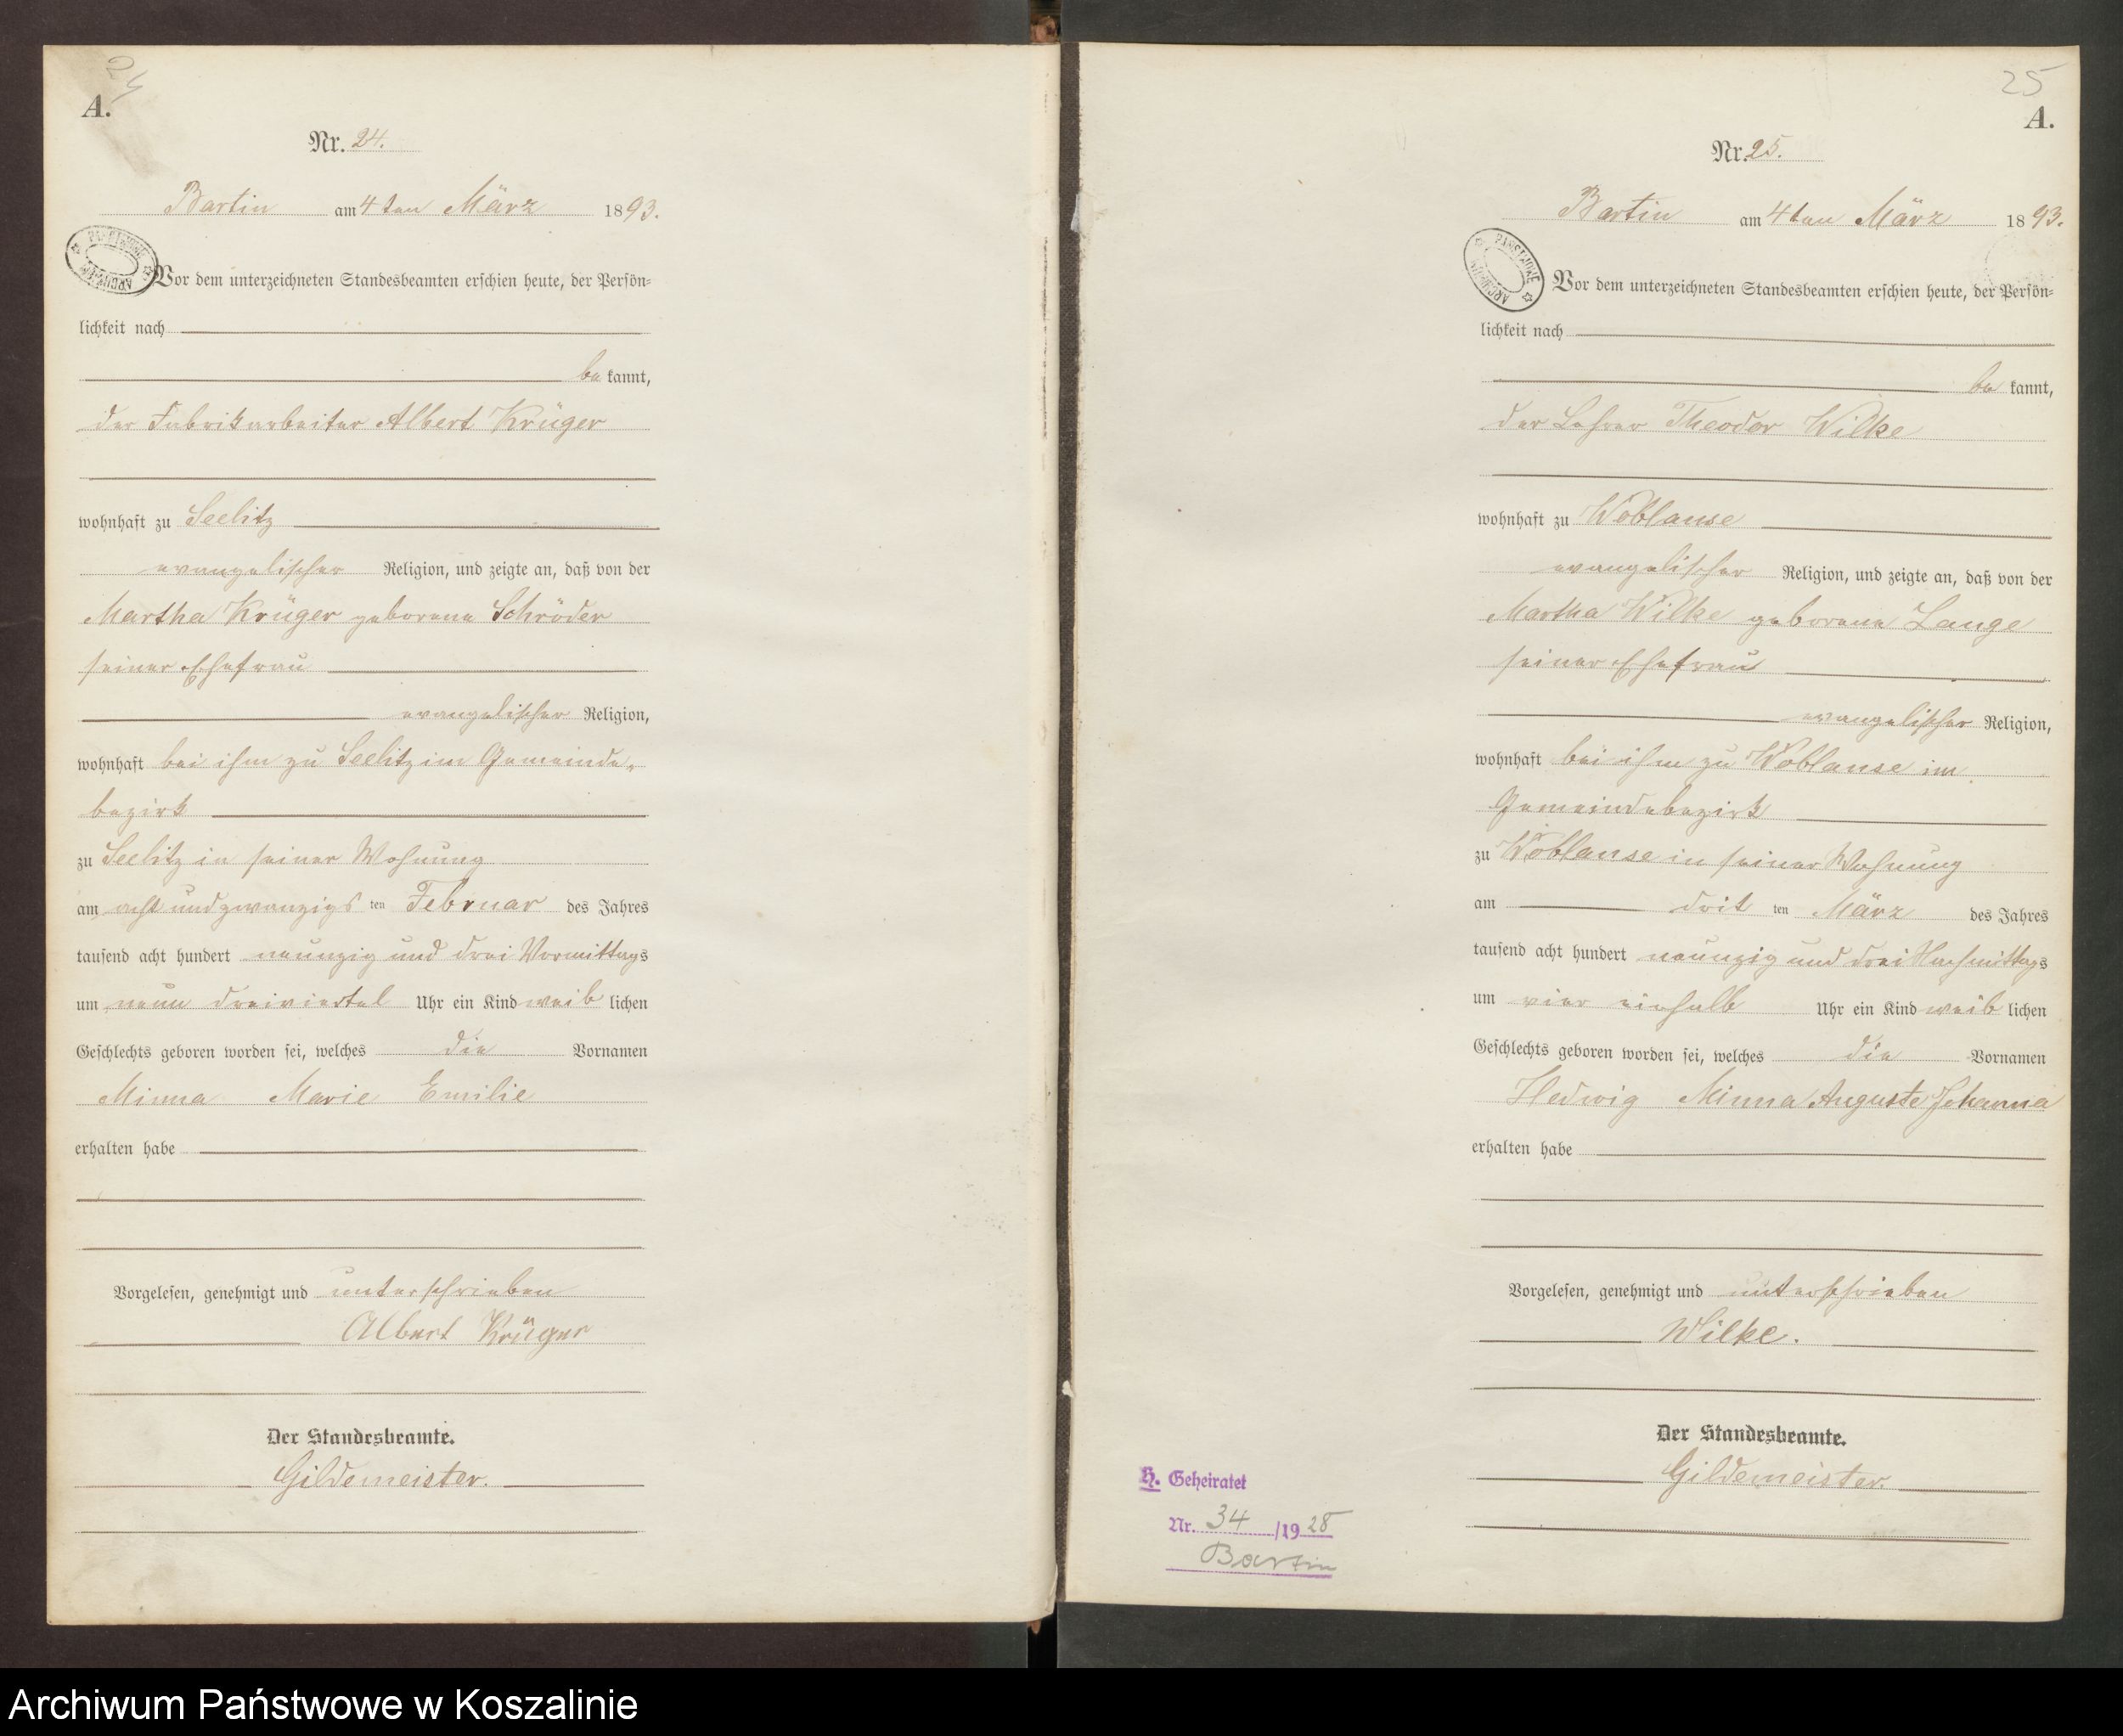 24
A.
Nr. 24.
Bartin am 4 ten März 1893.
Vor dem unterzeichneten Standesbeamten erschien heute, der Persön-
lichkeit nach
be kannt,
der Fabrikarbeiter Albert Krüger
wohnhaft zu Seelitz
evangelischer Religion, und zeigte an, daß von der
Martha Krüger geborene Schröder
seiner Ehefrau
evangelischer Religion,
wohnhaft bei ihm zu Seelitz im Gemeinde-
bezirk
zu Seelitz in seiner Wohnung
am acht und zwanzigs ten Februar des Jahres
tausend acht hundert neunzig und drei Vormittags
um neun dreiviertel Uhr ein Kind weib lichen
Geschlechts geboren worden sei, welches die Vornamen
Minna Marie Emilie
erhalten habe
Vorgelesen, genehmigt und unterschrieben
Albert Krüger
Der Standesbeamte.
Gildemeister.
25
A.
Nr. 25.
Bartin am 4 ten März 1893.
PAŃSTWOWE ARCHIWUM
Vor dem unterzeichneten Standesbeamten erschien heute, der Persön-
lichkeit nach
be kannt,
der Lehrer Theodor Wilke
wohnhaft zu Woblanse
evangelischer Religion, und zeigte an, daß von der
Martha Wilke geborene Lange
seiner Ehefrau
evangelischer Religion,
wohnhaft bei ihm zu Woblanse im
Gemeindebezirk
zu Woblanse in seiner Wohnung
am drit ten März des Jahres
tausend acht hundert neunzig und drei Nachmittags
um vier einhalb Uhr ein Kind weib lichen
Geschlechts geboren worden sei, welches die Vornamen
Hedwig Minna Auguste Johanna
erhalten habe
Vorgelesen, genehmigt und unterschrieben
Wilke.
Der Standesbeamte.
Gildemeister.
H. Geheiratet
Nr. 34 /1928
Bartin
Archiwum Państwowe w Koszalinie